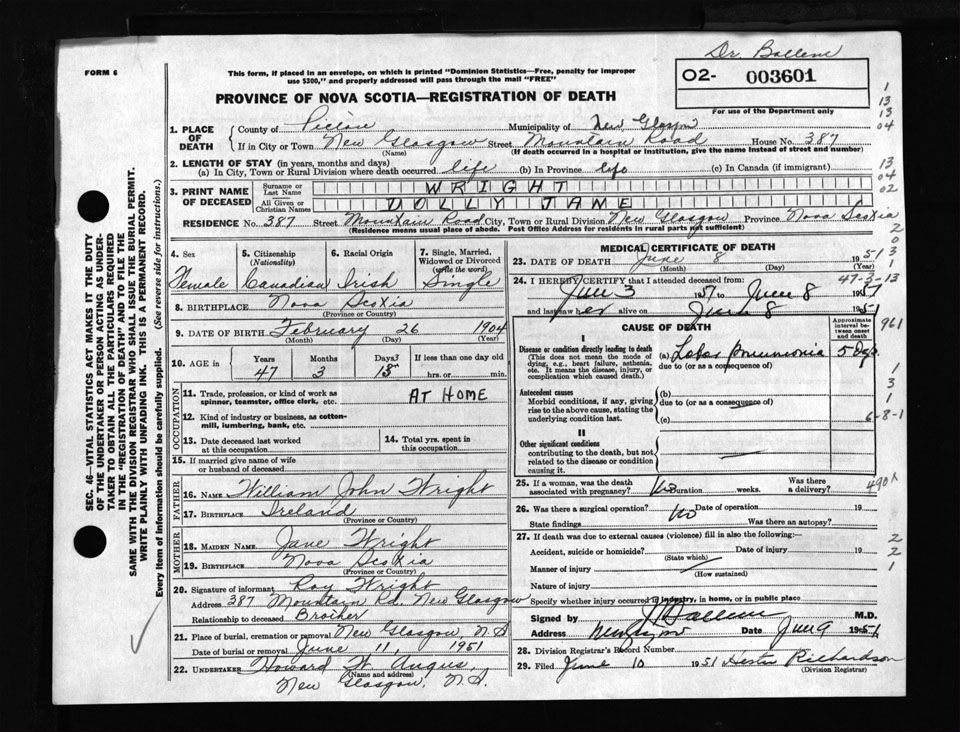 Dr. Ballem
FORM 6
This form, if placed in an envelope, on which is printed "Dominion Statistics—Free, penalty for improper
use $300," and properly addressed will pass through the mail "FREE"
O2- 003601
PROVINCE OF NOVA SCOTIA—REGISTRATION OF DEATH
For use of the Department only
1. PLACE OF DEATH
County of Pictou Municipality of New Glasgow
If in City or Town New Glasgow Street Mountain Road House No. 387
(Name) (If death occurred in a hospital or institution, give the name instead of street and number)
2. LENGTH OF STAY (in years, months and days)
(a) In City, Town or Rural Division where death occurred life (b) In Province life (c) In Canada (if immigrant)
3. PRINT NAME OF DECEASED
Surname or Last Name WRIGHT
All Given or Christian Names DOLLY JANE
RESIDENCE No. 387 Street Mountain Road City, Town or Rural Division New Glasgow Province Nova Scotia
(Residence means usual place of abode. Post Office Address for residents in rural parts not sufficient)
4. Sex
Female
5. Citizenship (Nationality)
Canadian
6. Racial Origin
Irish
7. Single, Married, Widowed or Divorced (write the word)
Single
8. BIRTHPLACE Nova Scotia
(Province or Country)
9. DATE OF BIRTH February 26 1904
(Month) (Day) (Year)
10. AGE in Years Months Days If less than one day old
47 3 13 hrs. or min.
OCCUPATION
11. Trade, profession, or kind of work as spinner, teamster, office clerk, etc. AT HOME
12. Kind of industry or business, as cotton-mill, lumbering, bank, etc.
13. Date deceased last worked at this occupation
14. Total yrs. spent in this occupation
15. If married give name of wife or husband of deceased
FATHER
16. NAME William John Wright
17. BIRTHPLACE Ireland
(Province or Country)
MOTHER
18. MAIDEN NAME Jane Wright
19. BIRTHPLACE Nova Scotia
(Province or Country)
20. Signature of informant Roy Wright
Address 387 Mountain Rd., New Glasgow
Relationship to deceased Brother
21. Place of burial, cremation or removal New Glasgow, N.S
Date of burial or removal June 11, 1951
22. UNDERTAKER Howard W. Angus,
(Name and address)
New Glasgow, N.S.
MEDICAL CERTIFICATE OF DEATH
23. DATE OF DEATH June 8 1951
(Month) (Day) (Year)
24. I HEREBY CERTIFY that I attended deceased from:
47-3-13
June 3 1951 to June 8 1951
and last saw her alive on June 8 1951
CAUSE OF DEATH
Approximate interval between onset and death
I
Disease or condition directly leading to death
(This does not mean the mode of dying, e.g., heart failure, asthenia, etc. It means the disease, injury, or complication which caused death.)
(a) Lobar Pneumonia 5 Days
due to (or as a consequence of)
Antecedent causes
Morbid conditions, if any, giving rise to the above cause, stating the underlying condition last.
(b)
due to (or as a consequence of)
(c) 6-8-1
II
Other significant conditions
contributing to the death, but not related to the disease or condition causing it.
25. If a woman, was the death associated with pregnancy? No Duration weeks. Was there a delivery?
490
26. Was there a surgical operation? No Date of operation 19
State findings Was there an autopsy?
27. If death was due to external causes (violence) fill in also the following:—
Accident, suicide or homicide? Date of injury 19
(State which)
Manner of injury
(How sustained)
Nature of injury
Specify whether injury occurred in industry, in home, or in public place
Signed by J Ballem M.D.
Address New Glasgow Date June 9 1951
28. Division Registrar's Record Number
29. Filed June 10 1951 Hester Richardson
(Division Registrar)
SEC. 46—VITAL STATISTICS ACT MAKES IT THE DUTY
OF THE UNDERTAKER OR PERSON ACTING AS UNDER-
TAKER TO OBTAIN ALL THE PARTICULARS REQUIRED
IN THE "REGISTRATION OF DEATH" AND TO FILE THE
SAME WITH THE DIVISION REGISTRAR WHO SHALL ISSUE THE BURIAL PERMIT.
WRITE PLAINLY WITH UNFADING INK. THIS IS A PERMANENT RECORD.
Every item of information should be carefully supplied. (See reverse side for instructions.)
1
13
13
04
13
04
02
2
0
3
1
961
1
3
1
2
2
1